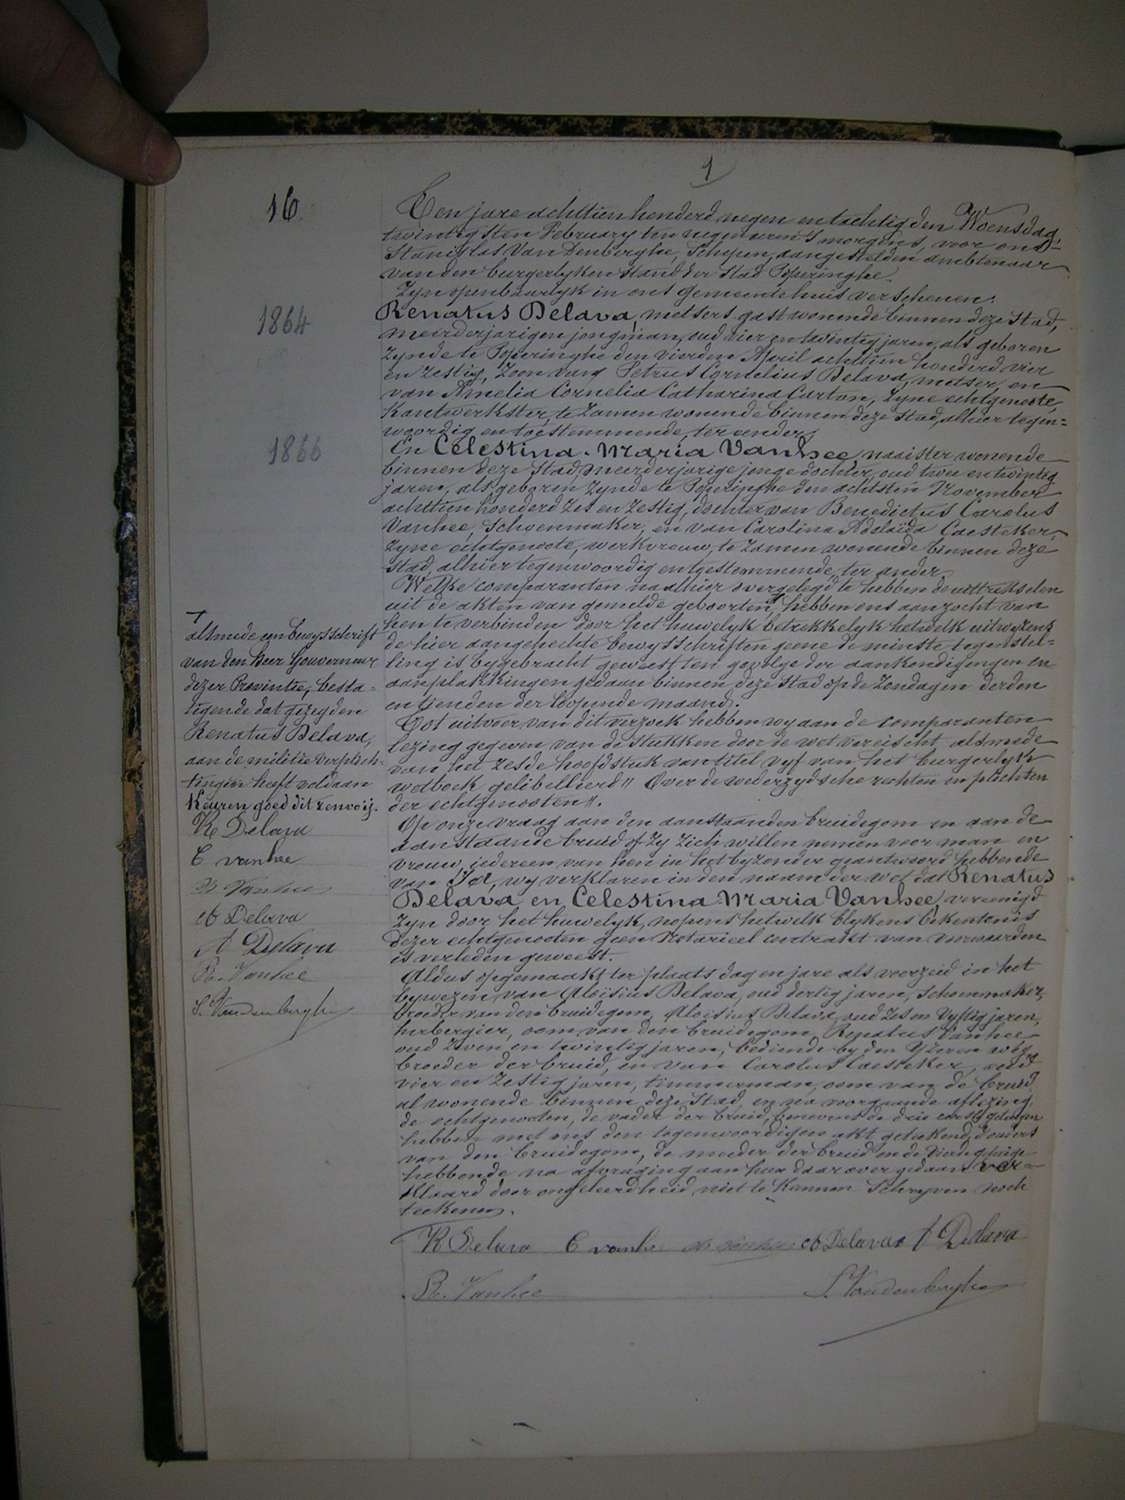 1
16.
Een jare achttien honderd negen en tachtig den Woensdag
twintigsten February ten negen uren 's morgens, voor ons
Stanislas Van Denberghe, Schepen, aangestelden ambtenaar
van den burgerlyken stand der Stad Poperinghe.
Zyn openbaarlyk in ons gemeentehuis verschenen:
1864
Renatus Delava, metsers gast wonende binnen deze Stad,
meerderjarigen jongman, oud vier en twintig jaren, als geboren
zynde te Poperinghe den vierden April achttien honderd vier
en zestig, zoon van Petrus Cornelius Delava, metser, en
van Amelia Cornelia Catharina Carton, zyne echtgenote,
kantwerkster, te zamen wonende binnen deze stad, alhier tegen=
woordig en toestemmende, ter eender;
1866
En Celestina Maria Vanhee, naaister wonende
binnen deze Stad meerderjarige jonge dochter, oud twee en twintig
jaren, als geboren zynde te Poperinghe den achtsten November
achttien honderd zes en zestig, dochter van Benedictus Carolus
Vanhee, Schoenmaker, en van Carolina Adelaïde Caesteker,
zyne echtgenoote, werkvrouw, te zamen wonende binnen deze
stad, alhier tegenwoordig en toestemmende, ter ander.
Welke comparanten na alhier overgelegd te hebben de uittreksels
uit de akten van gemelde geboorten, hebben ons aanzocht van
hen te verbinden door het huwelyk betrekkelyk hetwelk uitwyzens
de hier aangehechte bewysschriften geene de minste tegenstel=
ling is bygebracht geweest ten gevolge der aankondigingen en
aanplakkingen gedaan binnen deze stad op de zondagen derden
en tienden der loopende maand.
Tot uitvoer van dit verzoek hebben wy aan de comparanten
lezing gegeven van de stukken door de wet vereischt, alsmede
van het zesde hoofdstuk van titel vyf van het burgerlyk
wetboek gelibelleerd " Over de wederzydsche rechten en plichten
der echtgenooten".
Op onze vraag aan den aanstaanden bruidegom en aan de
aanstaande bruid of zy zich willen nemen voor man en
vrouw, iedereen van hen in het byzonder geantwoord hebbende
van Ja, wy verklaren in den naam der wet dat Renatus
Delava en Celestina Maria Vanhee, vereenigd
zyn door het huwelyk, nopens hetwelk blykens bekentenis
dezer echtgenooten geen notarieel contrakt van voorwaarden
is verleden geweest.
Aldus opgemaakt ter plaats dag en jare als voorzeid in het
bywezen van Aloïsius Delava, oud dertig jaren, schoenmaker,
broeder van den bruidegom, Aloïsius Delava, oud zes en vyftig jaren,
herbergier, oom van den bruidegom, Renatus Vanhee
oud zeven en twintig jaren, bediende by den Yzeren weg
broeder der bruid, en van Carolus Caesteker, oud
vier en zestig jaren, timmerman, oom van de bruid,
al wonende binnen deze Stad, en na voorgaande aflezing
de echtgenooten, de vader der bruid, benevens de drie eerste getuigen
hebben met ons den tegenwoordigen akt geteekend, d'ouders
van den bruidegom, de moeder der bruid en de vierde getuige
hebbende na afvraging aan hen daarover gedaan ver=
klaard door ongeleerdheid niet te kunnen schryven noch
teekenen.
R Delava C vanhee B Vanhee Al Delava A Delava
R. Vanhee S. Vandenberghe
alsmede een bewysschrift
van den heer Gouverneur
dezer Provintie, besta=
tigende dat gezegden
Renatus Delava,
aan de militie verplich=
tingen heeft voldaan
Keuren goed dit renvooij.
R Delava
C vanhee
B Vanhee
Al Delava
A Delava
R. Vanhee
S. Vandenberghe